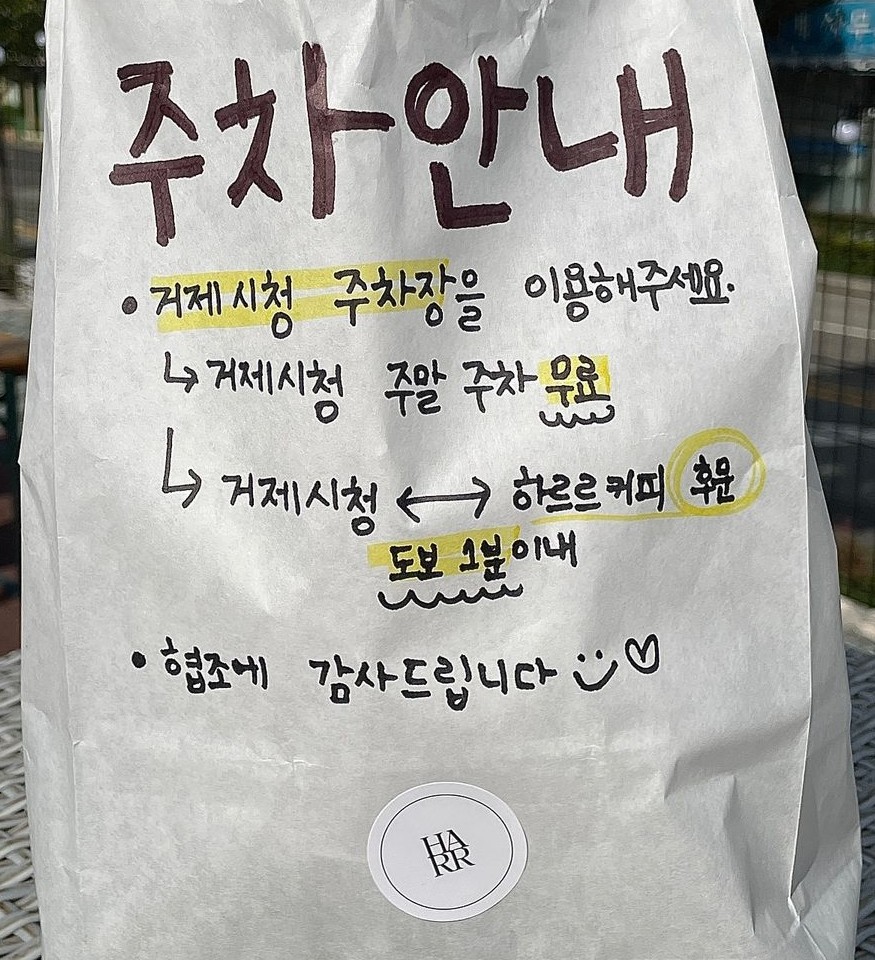 주차안내
• 거제시청 주차장을 이용해주세요.
↳ 거제시청 주말 주차 무료
↳ 거제시청 ↔ 하르르커피 후문
도보 1분이내
• 협조에 감사드립니다 :) ♡
HA
RR